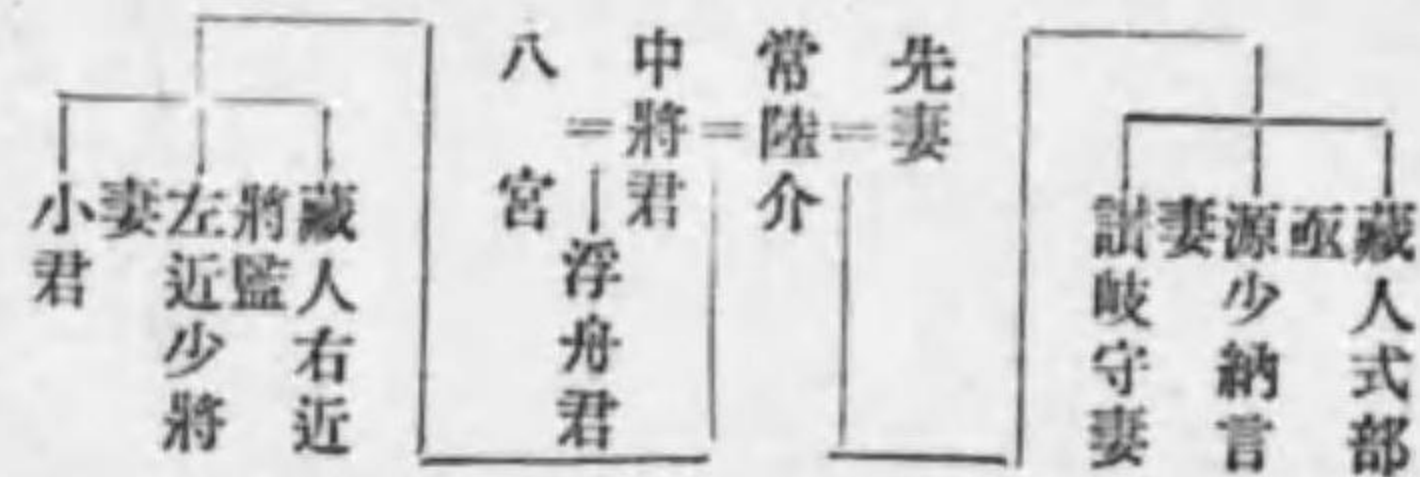 藏人式部
丞
源少納言
妻
讃岐守妻
先妻
=
常陸介
=
中將君
=
八宮
浮舟君
藏人右近
將監
左近少將
妻
小君